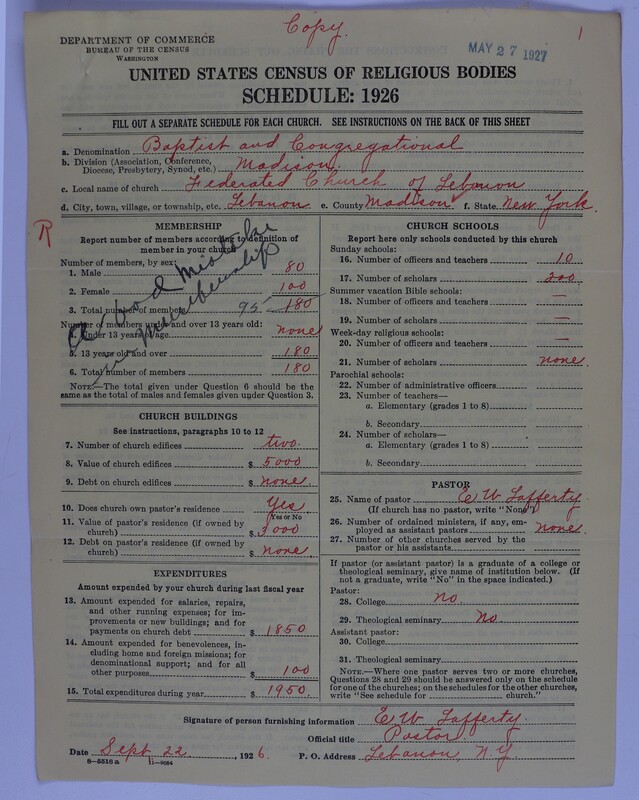 Copy.
1
DEPARTMENT OF COMMERCE
BUREAU OF THE CENSUS
WASHINGTON
MAY 27 1927
UNITED STATES CENSUS OF RELIGIOUS BODIES
SCHEDULE: 1926
FILL OUT A SEPARATE SCHEDULE FOR EACH CHURCH. SEE INSTRUCTIONS ON THE BACK OF THIS SHEET
a. Denomination Baptist and Congregational
b. Division (Association, Conference, Diocese, Presbytery, Synod, etc.) Madison.
c. Local name of church Federated Church of Lebanon
d. City, town, village, or township, etc. Lebanon e. County Madison f. State New York.
R
MEMBERSHIP
Report number of members according to definition of
member in your church
a bad mistake
in membership
Number of members, by sex:
1. Male 80
2. Female 100
3. Total number of members 95 180
Number of members under and over 13 years old:
4. Under 13 years of age none
5. 13 years old and over 180
6. Total number of members 180
NOTE.—The total given under Question 6 should be
same as the total of males and females given under Question 3.
CHURCH BUILDINGS
See instructions, paragraphs 10 to 12
7. Number of church edifices two.
8. Value of church edifices $ 5000
9. Debt on church edifices $ none.
10. Does church own pastor's residence Yes
Yes or No
11. Value of pastor's residence (if owned by
church) $ 3000
12. Debt on pastor's residence (if owned by
church) $ none.
EXPENDITURES
Amount expended by your church during last fiscal year
13. Amount expended for salaries, repairs,
and other running expenses; for im-
provements or new buildings; and for
payments on church debt $ 1850
14. Amount expended for benevolences, in-
cluding home and foreign missions; for
denominational support; and for all
other purposes $ 100
15. Total expenditures during year $ 1950.
CHURCH SCHOOLS
Report here only schools conducted by this church
Sunday schools:
16. Number of officers and teachers 10
17. Number of scholars 200
Summer vacation Bible schools:
18. Number of officers and teachers —
19. Number of scholars —
Week-day religious schools:
20. Number of officers and teachers
21. Number of scholars none.
Parochial schools:
22. Number of administrative officers
23. Number of teachers—
a. Elementary (grades 1 to 8)
b. Secondary
24. Number of scholars—
a. Elementary (grades 1 to 8)
b. Secondary
PASTOR
25. Name of pastor E W Lafferty.
(If church has no pastor, write "None")
26. Number of ordained ministers, if any, em-
ployed as assistant pastors none.
27. Number of other churches served by the
pastor or his assistants
If pastor (or assistant pastor) is a graduate of a college or
theological seminary, give name of institution below. (If
not a graduate, write "No" in the space indicated.)
Pastor:
28. College no.
29. Theological seminary No.
Assistant pastor:
30. College
31. Theological seminary
NOTE.—Where one pastor serves two or more churches,
Questions 28 and 29 should be answered only on the schedule
for one of the churches; on the schedules for the other churches,
write "See schedule for church."
Signature of person furnishing information E W Lafferty.
Official title Pastor.
Date Sept 22, 1926. P. O. Address Lebanon, N.Y
8—5518a 11—9084